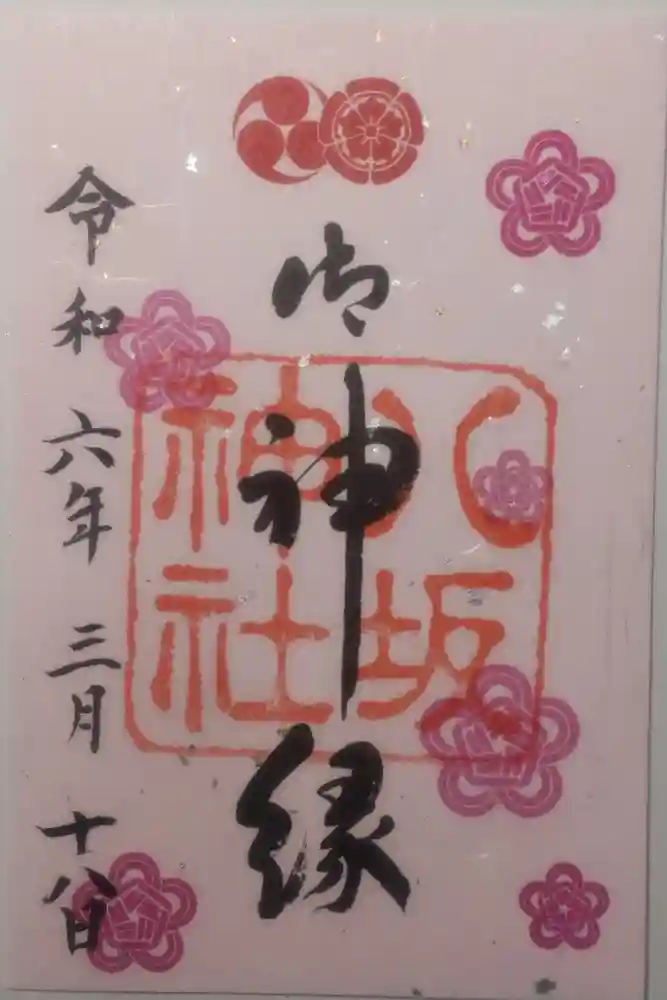 御神縁
八坂
神社
令和六年三月十八日